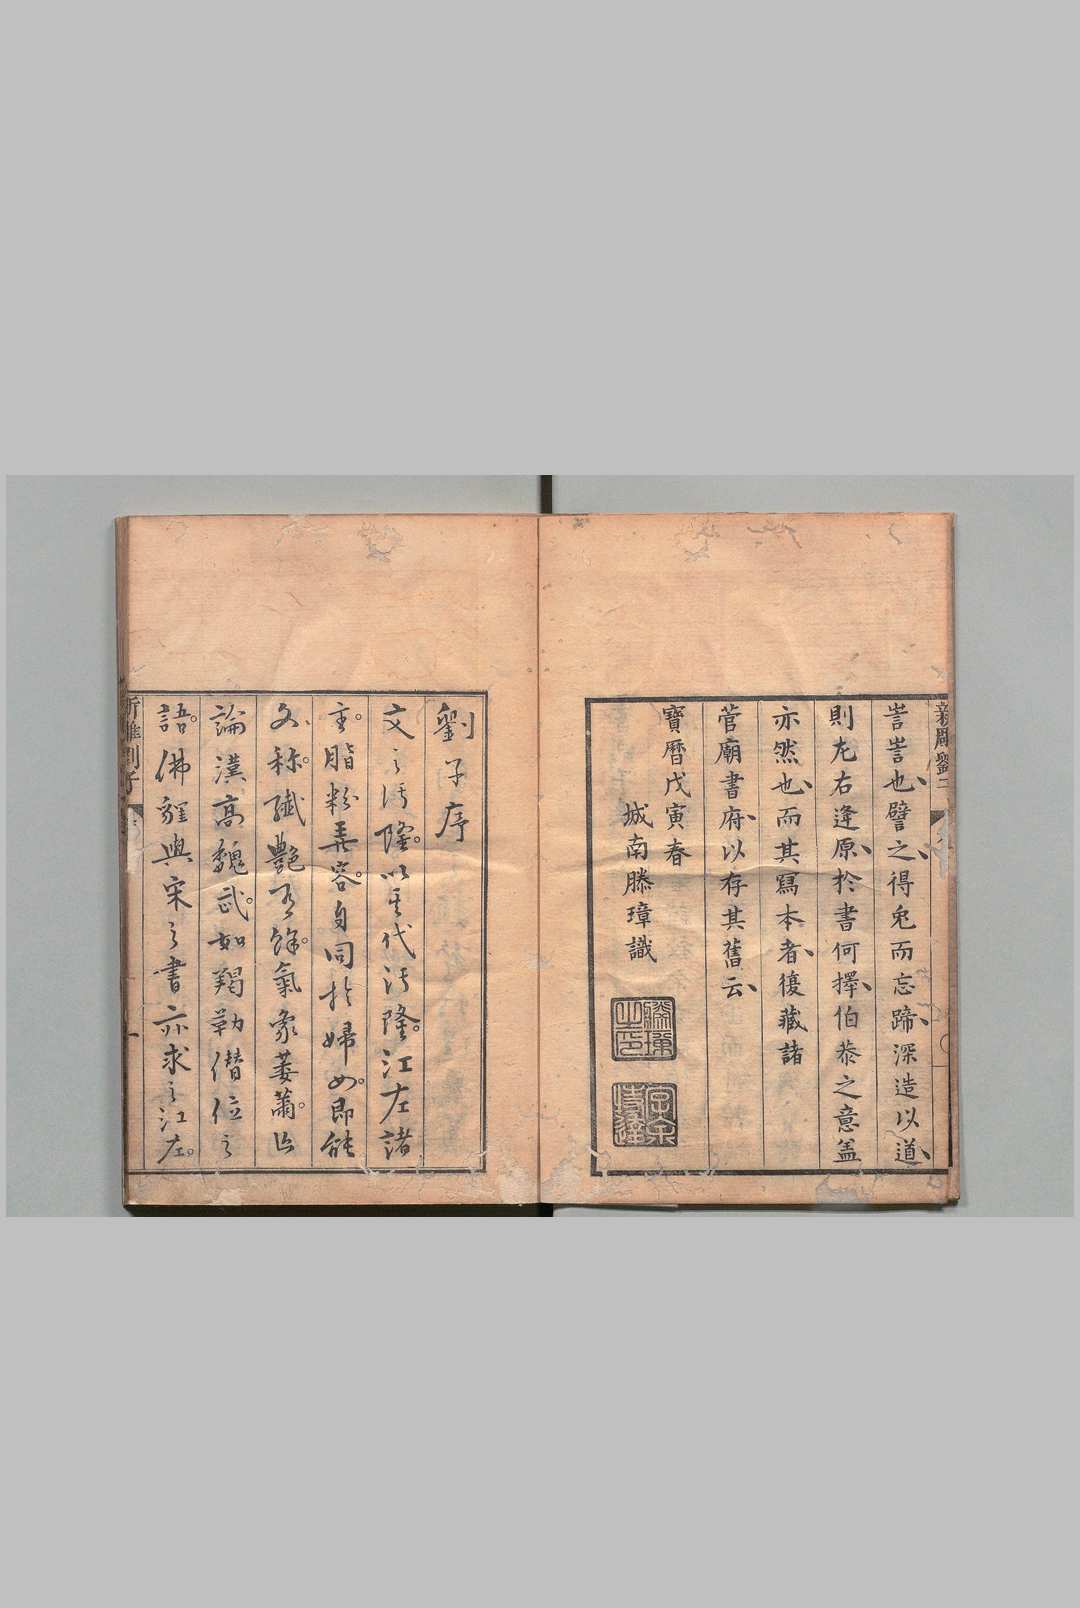 訔訔也譬之得兎而忘蹄深造以道
則左右逢原於書何擇伯恭之意盖
亦然也而其寫本者復藏諸
菅廟書府以存其舊云
寶曆戊寅春
城南滕璋識
滕璋之印
劉子序
文之汚隆以其代汚隆江左諸
主脂粉其容自同於婦女即能
文称孅艷
餘氣象萎薾
論漢高魏武如羯勒僭位之
語佛貍與宋之書亦求之江左